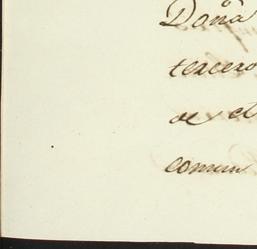 Doña
tercero
de el
comun